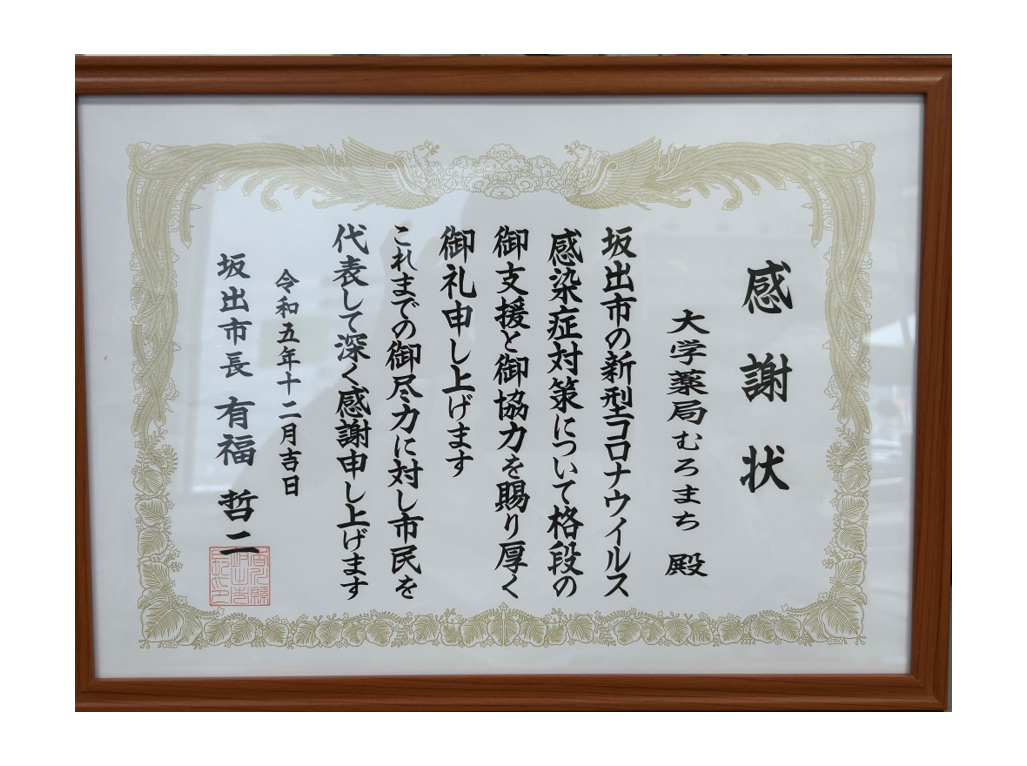 感謝状
大学薬局むろまち 殿
坂出市の新型コロナウイルス
感染症対策について格段の
御支援と御協力を賜り厚く
御礼申し上げます
これまでの御尽力に対し市民を
代表して深く感謝申し上げます
令和五年十二月吉日
坂出市長 有福 哲二